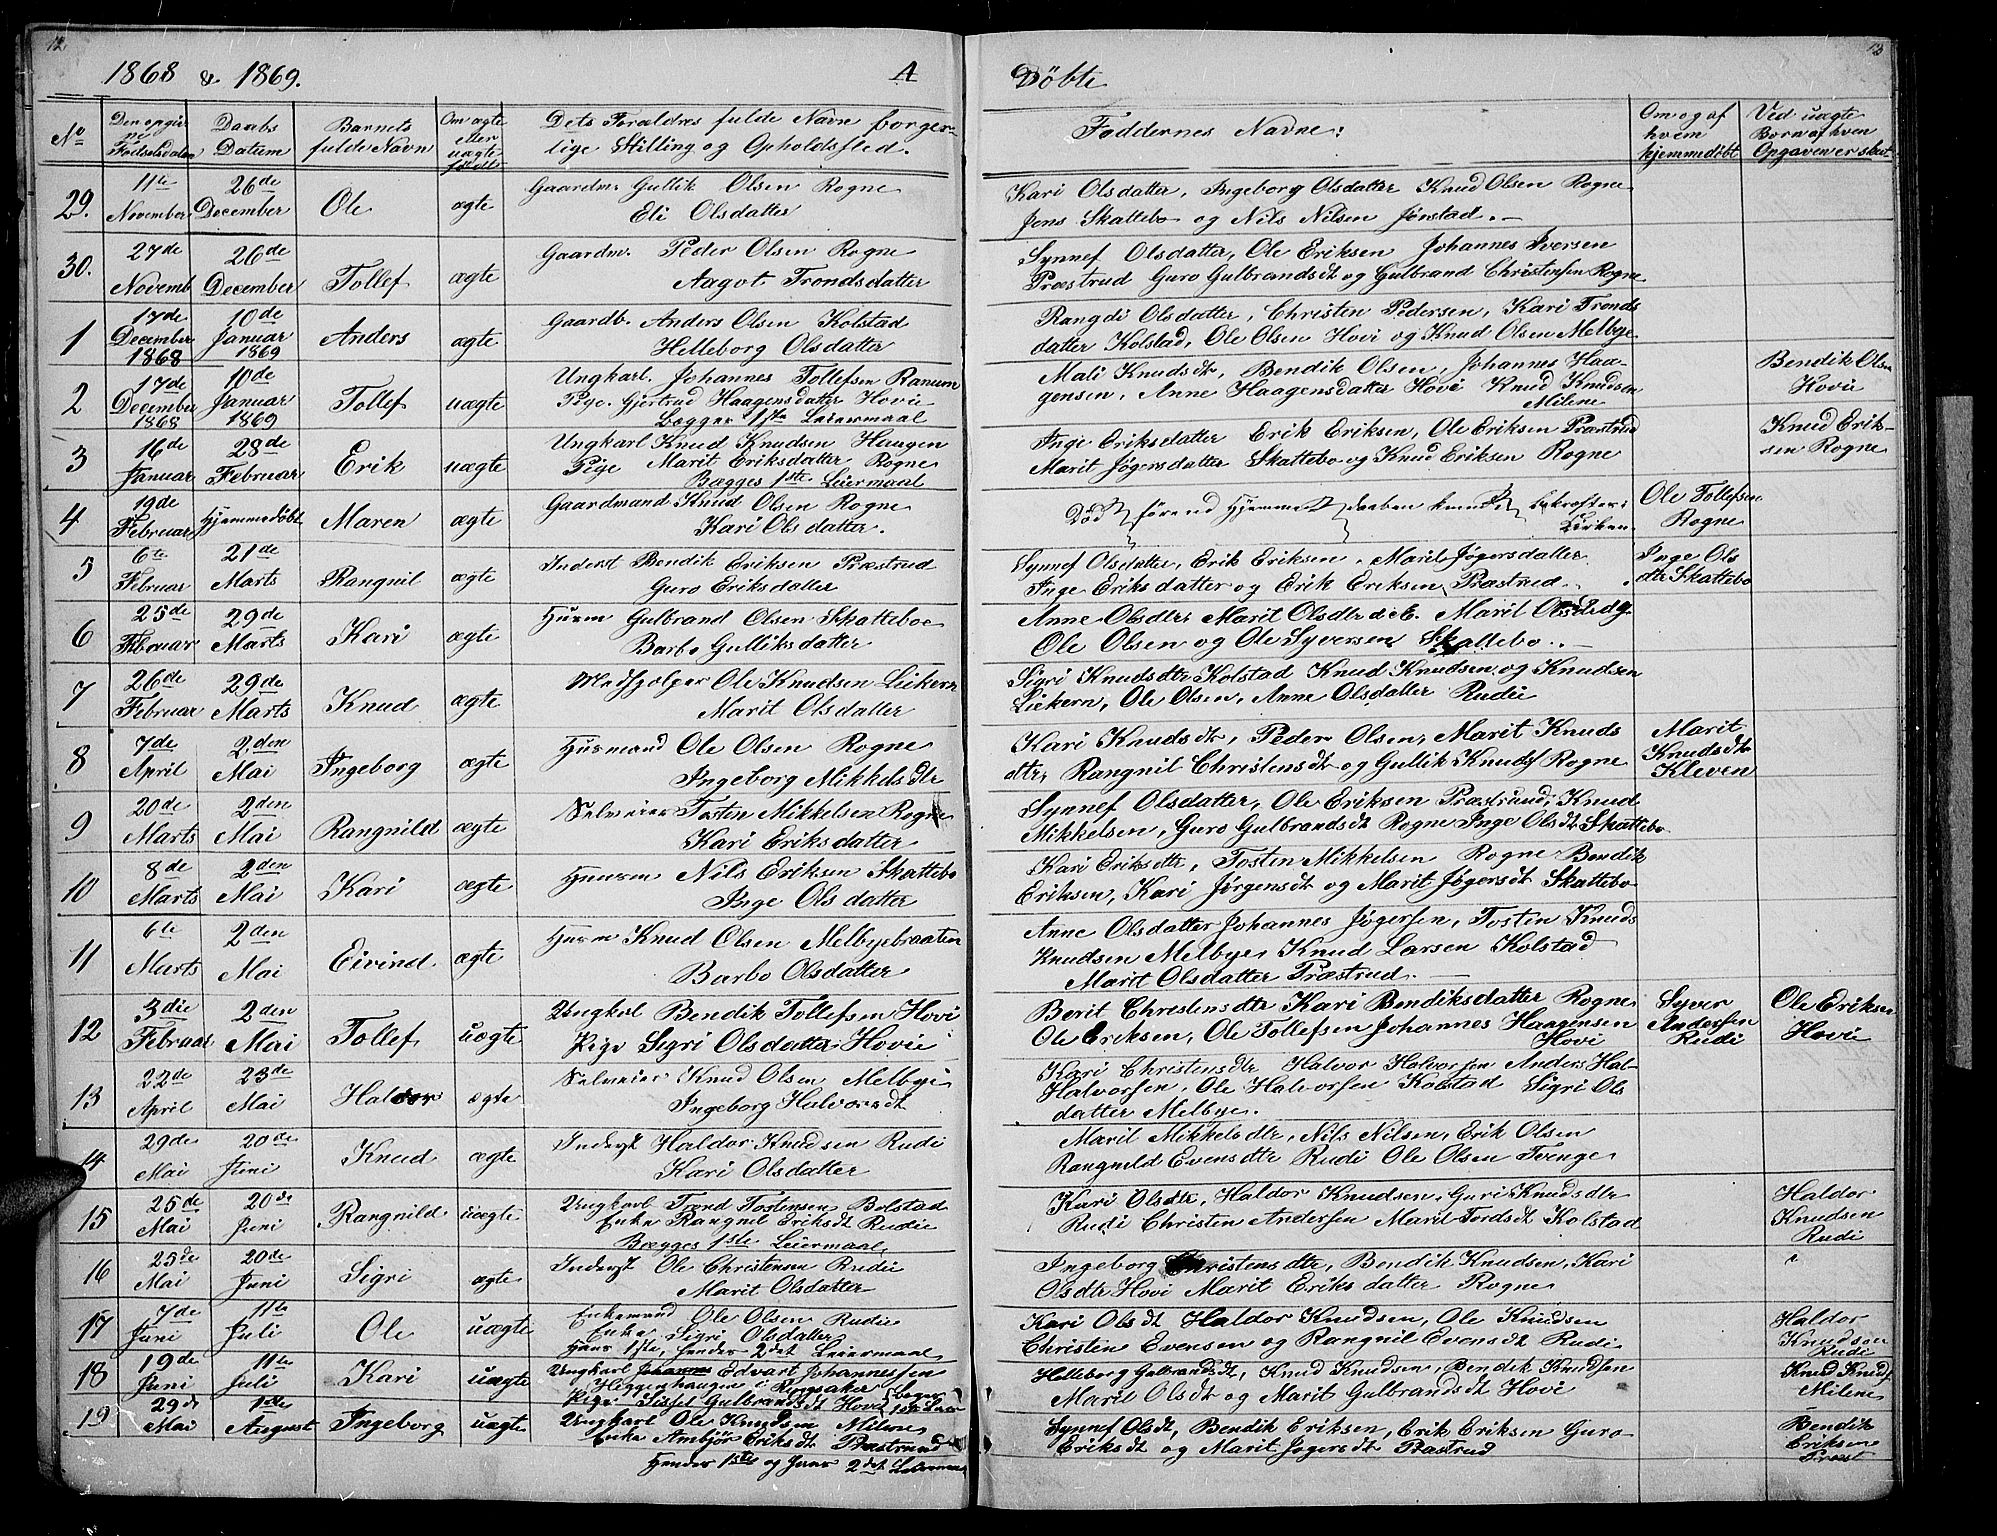 12
13
1868 & 1869.
A
Døbte
No
Den opgiv
ne
Fødselsdaten
Daabs
Datum
Barnets
fulde Navn
Om ægte
eller
uægte
født
Dets Forældres fulde Navn borger-
lige Stilling og Opholdssted.
Faddernes Navne:
Om og af
hvem
hjemmedøbt
Ved uægte
Børn af hvem
Opgaven er skeet
29.
11te
November
26de
December
Ole
ægte
Gaardm. Gullik Olsen Rogne
Eli Olsdatter
Kari Olsdatter, Ingeborg Olsdatter Knud Olsen Rogne
Jens Skattebo og Nils Nilsen Jørstad.
30.
27de
Novemb
26de
December
Tollef
ægte
Gaardm. Peder Olsen Rogne
Aagot Trondsdatter
Synnef Olsdatter, Ole Eriksen Johannes Iversen
Præstrud Guro Gulbrandsdt og Gulbrand Christensen Rogne
1
17de
December
1868
10de
Januar
1869
Anders
ægte
Gaardb. Anders Olsen Kolstad
Helleborg Olsdatter
Rangdi Olsdatter, Christen Pedersen, Kari Tronds
datter Kolstad, Ole Olsen Hovi og Knud Olsen Melbye
2
17de
December
1868
10de
Januar
1869
Tollef
uægte
Ungkarl. Johannes Tollefsen Ranum
Pige. Gjertrud Haagensdatter Hovie
Begges 1ste Leiermaal
Mali Knudsdt, Bendik Olsen, Johannes Haa-
gensen, Anne Haagensdatter Hovi Knud Knudsen
Milene
Bendik Olsen
Hovie
3
16de
Januar
28de
Februar
Erik
uægte
Ungkarl Knud Knudsen Haugen
Pige Marit Eriksdatter Rogne
Bægges 1ste Leiermaal
Inge Eriksdatter Erik Eriksen, Ole Eriksen Præstrud
Marit Jøgersdatter Skattebo og Knud Eriksen Rogne
Knud Erik-
sen Rogne
4
19de
Februar
Hjemmedøbt
Maren
ægte
Gaardmand Knud Olsen Rogne
Kari Olsdatter.
Død førend Hjemmedaaben kunde bekræftes i
Kirken
Ole Tollefsen
Rogne
5
6te
Februar
21de
Marts
Rangnil
ægte
Inderst Bendik Eriksen Præstrud
Guro Eriksdatter
Synnef Olsdatter, Erik Eriksen, Marit Jøgersdatter
Inge Eriksdatter og Erik Eriksen Præstrud.
Inge Ols
dtr Skattebo
6
25de
Februar
29de
Marts
Kari
ægte
Husm Gulbrand Olsen Skatteboe
Barbo Gulliksdatter
Anne Olsdtr Marit Olsdtr d.e. Marit Olsdtr d.y.
Ole Olsen og Ole Syversen Skattebo.
7
26de
Februar
29de
Marts
Knud
ægte
Medhjelper Ole Knudsen Liekern
Marit Olsdatter
Sigri Knudsdtr Kolstad Knud Knudsen og Knudsen
Liekern, Ole Olsen, Anne Olsdatter Rudie
8
7de
April
2den
Mai
Ingeborg
ægte
Husmand Ole Olsen Rogne
Ingeborg Mikkelsdtr
Kari Knudsdt, Peder Olsen, Marit Knuds
dtr, Rangnil Christensdt og Gullik Knuds Rogne
Marit
Knudsdtr
Kleven
9
20de
Marts
2den
Mai
Rangnild
ægte
Selveier Tosten Mikkelsen Rogne
Kari Eriksdatter
Synnef Olsdatter, Ole Eriksen Præstrud, Knud
Mikkelsen, Guro Gulbrandsdt Rogne Inge Olsdt Skattebo
10
8de
Marts
2den
Mai
Kari
ægte
Huusm Nils Eriksen Skattebo
Inge Olsdatter
Kari Eriksdtr, Tosten Mikkelsen Rogne Bendik
Eriksen, Kari Jørgensdt og Marit Jøgersdt Skattebo
11
6te
Marts
2den
Mai
Eivind
ægte
Husm Knud Olsen Melbyebraaten
Barbo Olsdatter
Anne Olsdatter Johannes Jøgersen, Tosten Knuds
Knudsen Melbye, Knud Larsen Kolstad
Marit Olsdatter Præstrud.
12
3die
Februar
2den
Mai
Tollef
uægte
Ungkal Bendik Tollefsen Hovi
Pige Sigri Olsdatter Hovie
Berit Chrestensdtr Kari Bendiksdatter Rogne
Ole Eriksen, Ole Tollefsen Johannes Haagensen
Hovi
Syver
Andersen
Rudi
Ole Eriksen
Hovie
13
22de
April
23de
Mai
Haldor
ægte
Selveier Knud Olsen Melbye
Ingeborg Halvorsdt
Kari Christensdtr Halvor Halvorsen Anders Hal-
Halvorsen, Ole Halvorsen Kolstad Sigri Ols
datter Melbye.
14
29de
Mai
20de
Juni
Knud
ægte
Inderst Haldor Knudsen Rudi
Kari Olsdatter
Marit Mikkelsdtr, Nils Nilsen, Erik Olsen
Rangnild Evensdtr Rudi Ole Olsen Tvenge
15
25de
Mai
20de
Juni
Rangnild
uægte
Ungkarl Trond Tostensen Bolstad
Enke Rangnil Eriksdt Rudie
Bægges 1ste Leiermaal
Kari Olsdtr, Haldor Knudsen, Guri Knudsdtr
Rudi Christen Andersen Marit Tordsdt Kolstad
Haldor
Knudsen
Rudi
16
25de
Mai
20de
Juni
Sigri
ægte
Inderst Ole Christensen Rudie
Marit Olsdatter
Ingeborg Christensdtr, Bendik Knudsen, Kari
Olsdtr Hovi Marit Eriksdatter Rogne
17
7de
Juni
11te
Juli
Ole
uægte
Enkemand Ole Olsen Rudie
Enke Sigri Olsdatter
Hans 1ste, hendes 2det Leiermaal
Kari Olsdt Haldor Knudsen, Ole Knudsen
Christen Evensen og Rangnil Evensdt Rudi
Haldor
Knudsen
Rudi
18
19de
Juni
11te
Juli
Kari
uægte
Ungkarl Johannes Edvart Johannessen
Heggenhaugen i Ringsaker
Pige Sissel Gulbrandsdt Hovi
Helleborg Gulbrandsdt, Knud Knudsen, Bendik Knudsen
Marit Olsdt og Marit Gulbrandsdt Hovi
Knud Knuds
Milene
19
29de
Mai
1ste
August
Ingeborg
uægte
Ungkarl Ole Knudsen Milene
Enke Ambjør Eriksdt Præstrud
Hendes 1ste og hans 2det Leiermaal
Synnef Olsdt, Bendik Eriksen, Erik Eriksen Guro
Eriksdt og Marit Jøgersdt Præstrud
Bendik
Eriksen
Præst